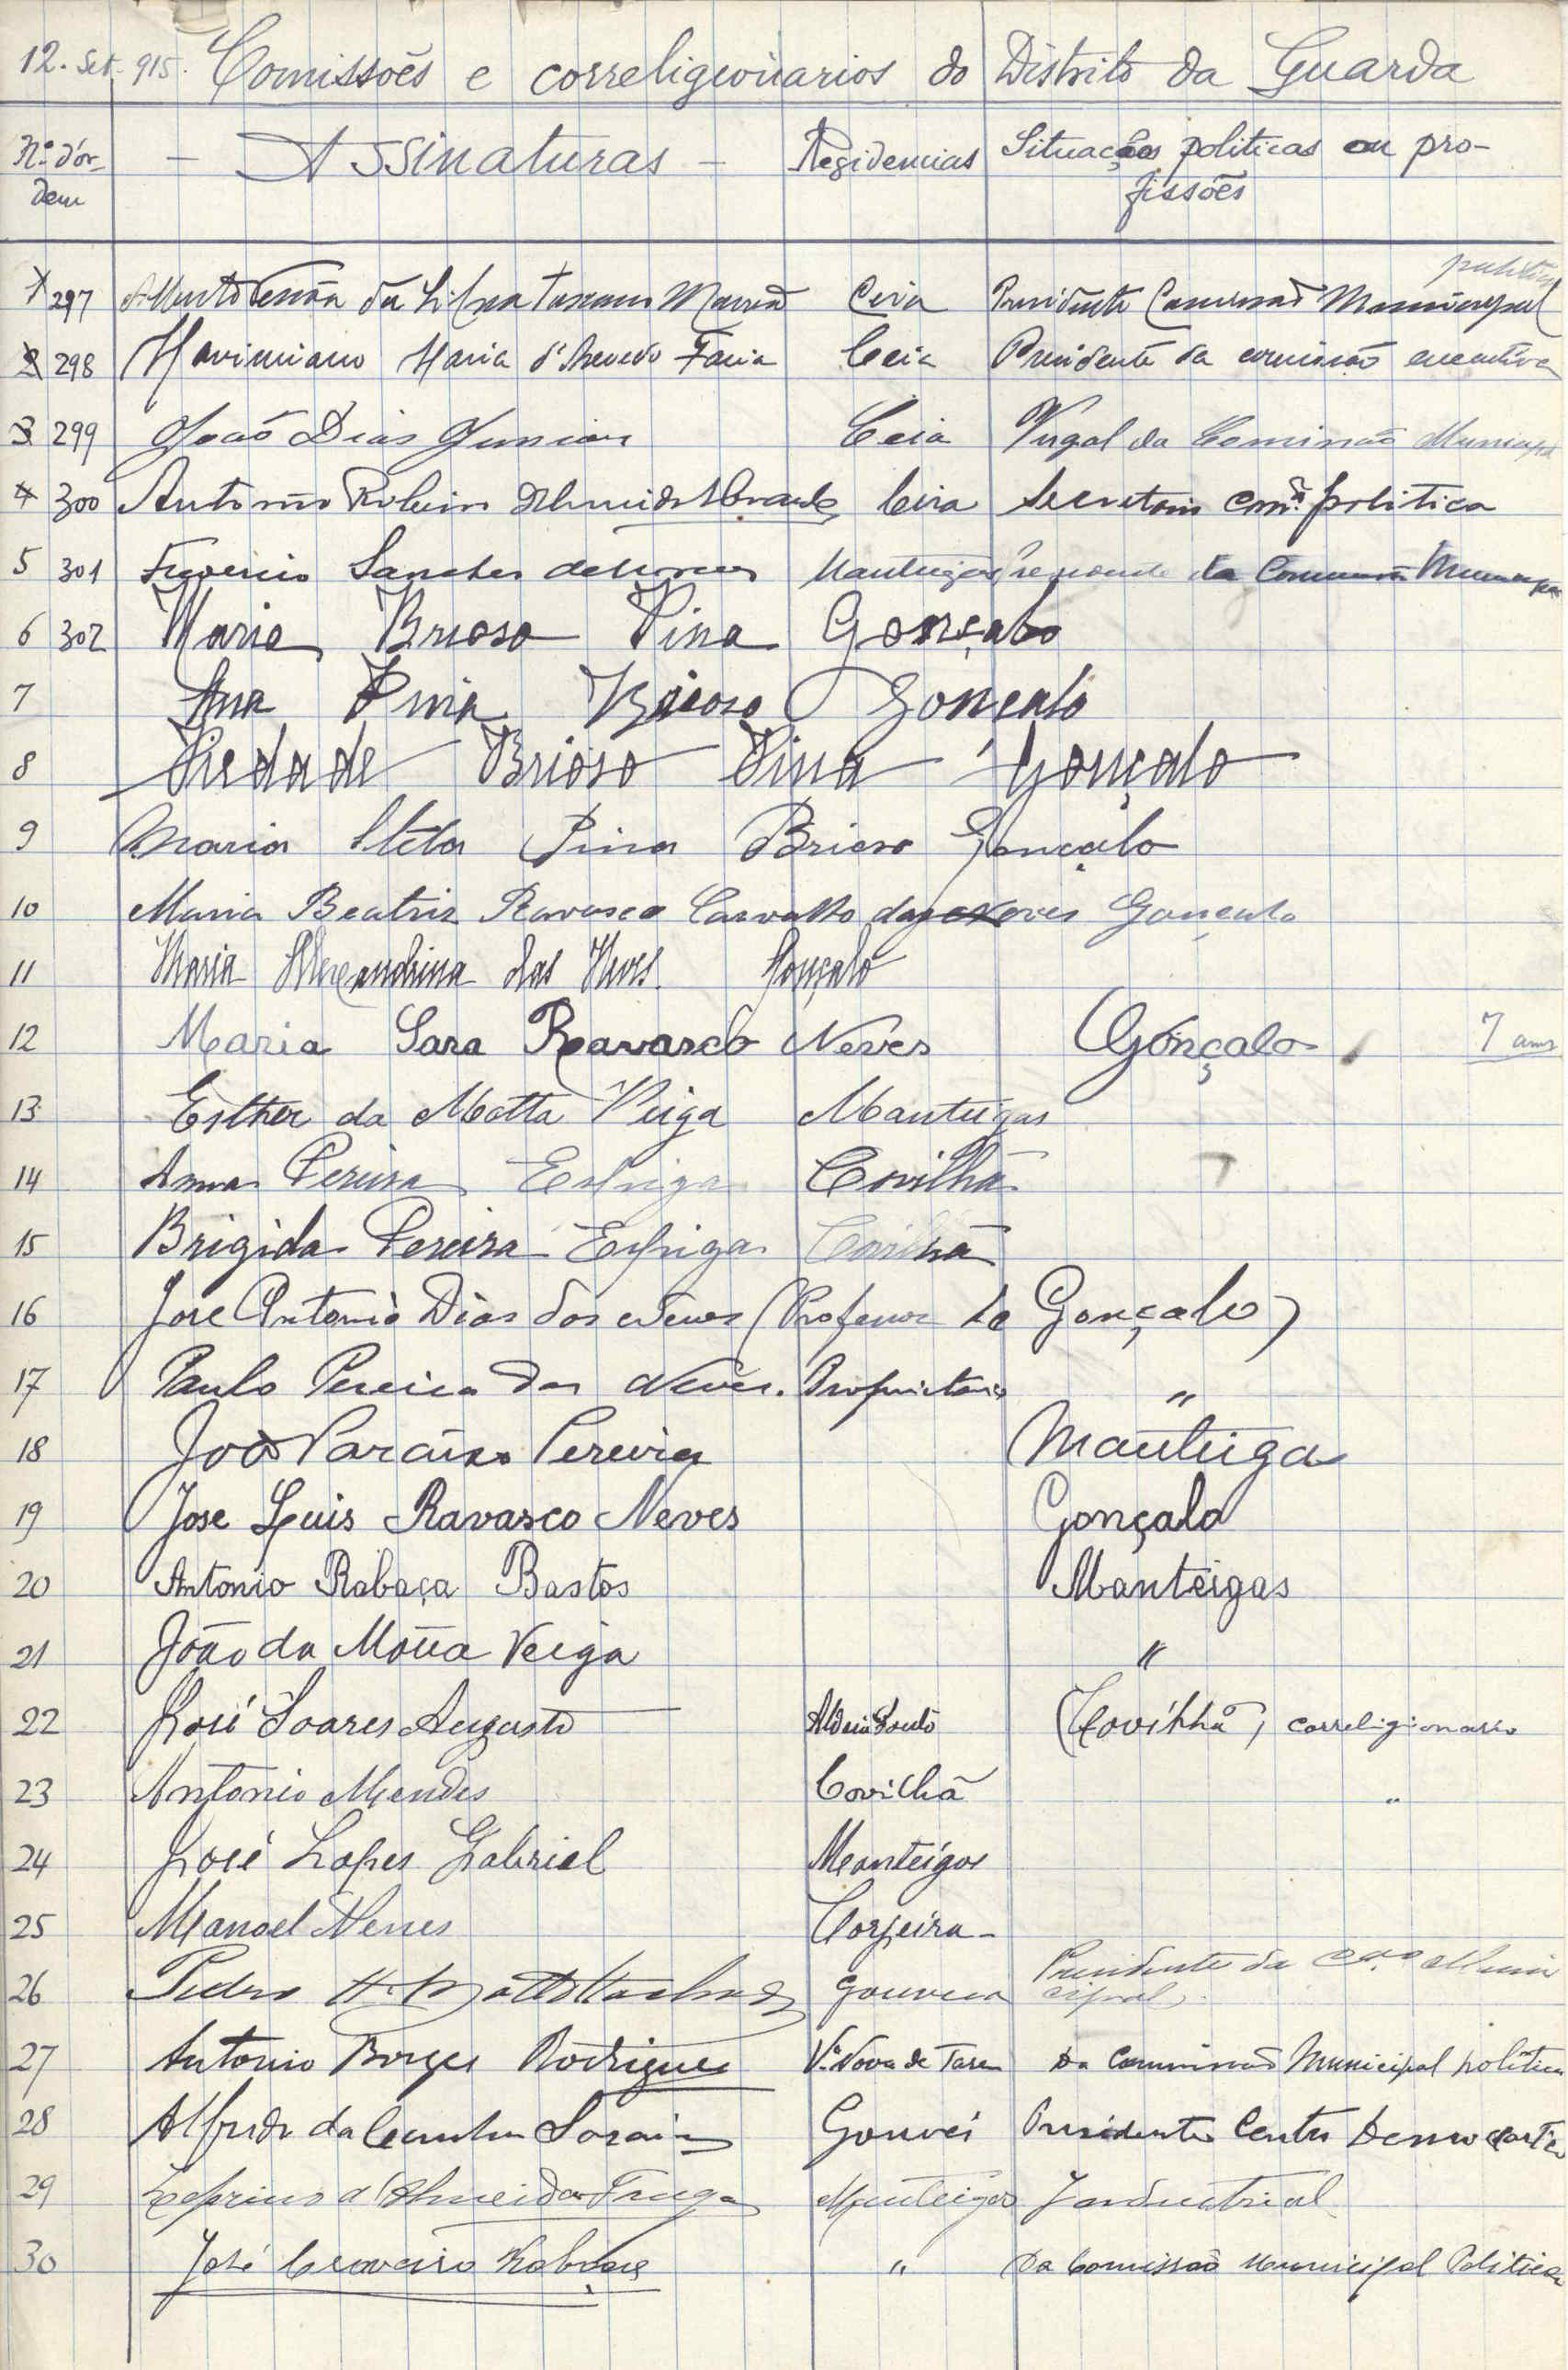 12. Set. 915. Comissões e correligionarios do Distrito da Guarda
Nº d'ór- - Assinaturas - Residencias Situações politicas ou pro-
dem fissões
1 297 da Silva Ceia Presidente Municipal
2 298 Maximiano Maria d'Azevedo Faria Ceia Presidente da comissão executiva
3 299 João Dias Junior Ceia Vogal da Comissão Municipal
4 300 Antonio Ceia politica
5 301 Sanches Manteigas da
6 302 Maria Brioso Pina Gonçalo
7 Ana Pina Brioso Gonçalo
8 Piedade Brioso Pina Gonçalo
9 Maria Stela Pina Brioso Gonçalo
10 Maria Beatriz Ravasco Carvalho das Neves Gonçalo
11 Maria Alexandrina das Neves. Gonçalo
12 Maria Sara Ravasco Neves Gonçalo 7 anos
13 Esther da Motta Veiga Manteigas
14 Anna Pereira Espiga Covilhã
15 Brigida Pereira Espiga Covilhã
16 Jose Antonio Dias dos Neves (Professor de Gonçalo)
17 Paulo Pereira das Neves. Proprietario "
18 João Paraizo Pereira Manteiga
19 Jose Luis Ravasco Neves Gonçalo
20 Antonio Rabaça Bastos Manteigas
21 João da Mota Veiga "
22 José Soares Augusto Aldeia Souto (Covilhã) correligionario
23 Antonio Mendes Covilhã "
24 José Lopes Gabriel Manteigas
25 Manoel Neves
26 Pedro Gouveia Presidente da Muni
cipal
27 Antonio Borges Rodrigues Vª Nova de Tazem Da Commissão Municipal politica
28 Alfredo da Cunha Gouvei Presidente Centro Democratico
29 d'Almeida Fraga Manteigas Industrial
30 José Craveiro " Da Comissão Municipal Politica